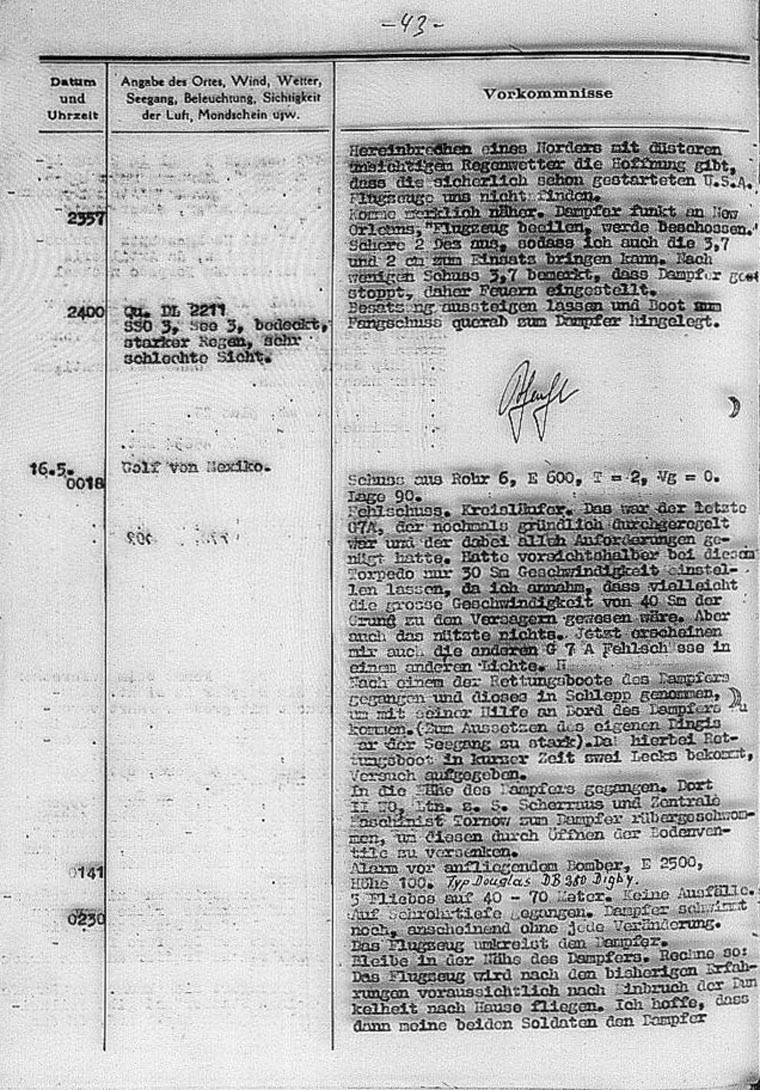 -43-
Datum
und
Uhrzeit
Angabe des Ortes, Wind, Wetter,
Seegang, Beleuchtung, Sichtigkeit
der Luft, Mondschein usw.
Vorkommnisse
Hereinbrechen eines Norders mit düsteren
unsichtigen Regenwetter die Hoffnung gibt,
dass die sicherlich schon gestarteten U.S.A.
Flugzeuge uns nicht finden.
2357
Komme merklich näher. Dampfer funkt an New
Orleans, "Flugzeug beeilen, werde beschossen."
Schere 2 Dez aus, sodass ich auch die 3,7
und 2 cm zum Einsatz bringen kann. Nach
wenigen Schuss 3,7 bemerkt, dass Dampfer gest
stoppt, daher Feuern eingestellt.
2400
Qu. DL 2211
SSO 3, See 3, bedeckt,
starker Regen, sehr
schlechte Sicht.
Besatzung aussteigen lassen und Boot zum
Fangschuss querab zum Dampfer hingelegt.
16.5.
0018
Golf von Mexiko.
Schuss aus Rohr 6, E 600, T = 2, Vg = 0.
Lage 90.
Fehlschuss. Kreisläufer. Das war der letzte
G7A, der nochmals gründlich durchgeregelt
war und der dabei allen Anforderungen ge-
nügt hatte. Hatte vorsichtshalber bei diesem
Torpedo nur 30 Sm Geschwindigkeit einstel-
len lassen, da ich annahm, dass vielleicht
die grosse Geschwindigkeit von 40 Sm der
Grund zu den Versagern gewesen wäre. Aber
auch das nützte nichts. Jetzt erscheinen
mir auch die anderen G 7 A Fehlschüsse in
einem anderen Lichte.
Nach einem der Rettungsboote des Dampfers
gegangen und dieses in Schlepp genommen,
um mit seiner Hilfe an Bord des Dampfers zu
kommen.(Zum Aussetzen des eigenen Dingis
war der Seegang zu stark).Da hierbei Ret-
tungsboot in kurzer Zeit zwei Lecks bekommt,
Versuch aufgegeben.
In die Nähe des Dampfers gegangen. Dort
II WO, Ltn. z. S. Scherraus und Zentrale
Maschinist Tornow zum Dampfer rübergeschwom-
men, um diesen durch Öffnen der Bodenven-
tile zu versenken.
0141
Alarm vor anfliegendem Bomber, E 2500,
Höhe 100. Typ Douglas DB 280 Digby.
5 Fliebos auf 40 - 70 Meter. Keine Ausfälle.
0230
Auf Sehrohrtiefe gegangen. Dampfer schwimmt
noch, anscheinend ohne jede Veränderung.
Das Flugzeug umkreist den Dampfer.
Bleibe in der Nähe des Dampfers. Rechne so:
Das Flugzeug wird nach den bisherigen Erfah-
rungen voraussichtlich nach Einbruch der Dun
kelheit nach Hause fliegen. Ich hoffe, dass
dann meine beiden Soldaten den Dampfer